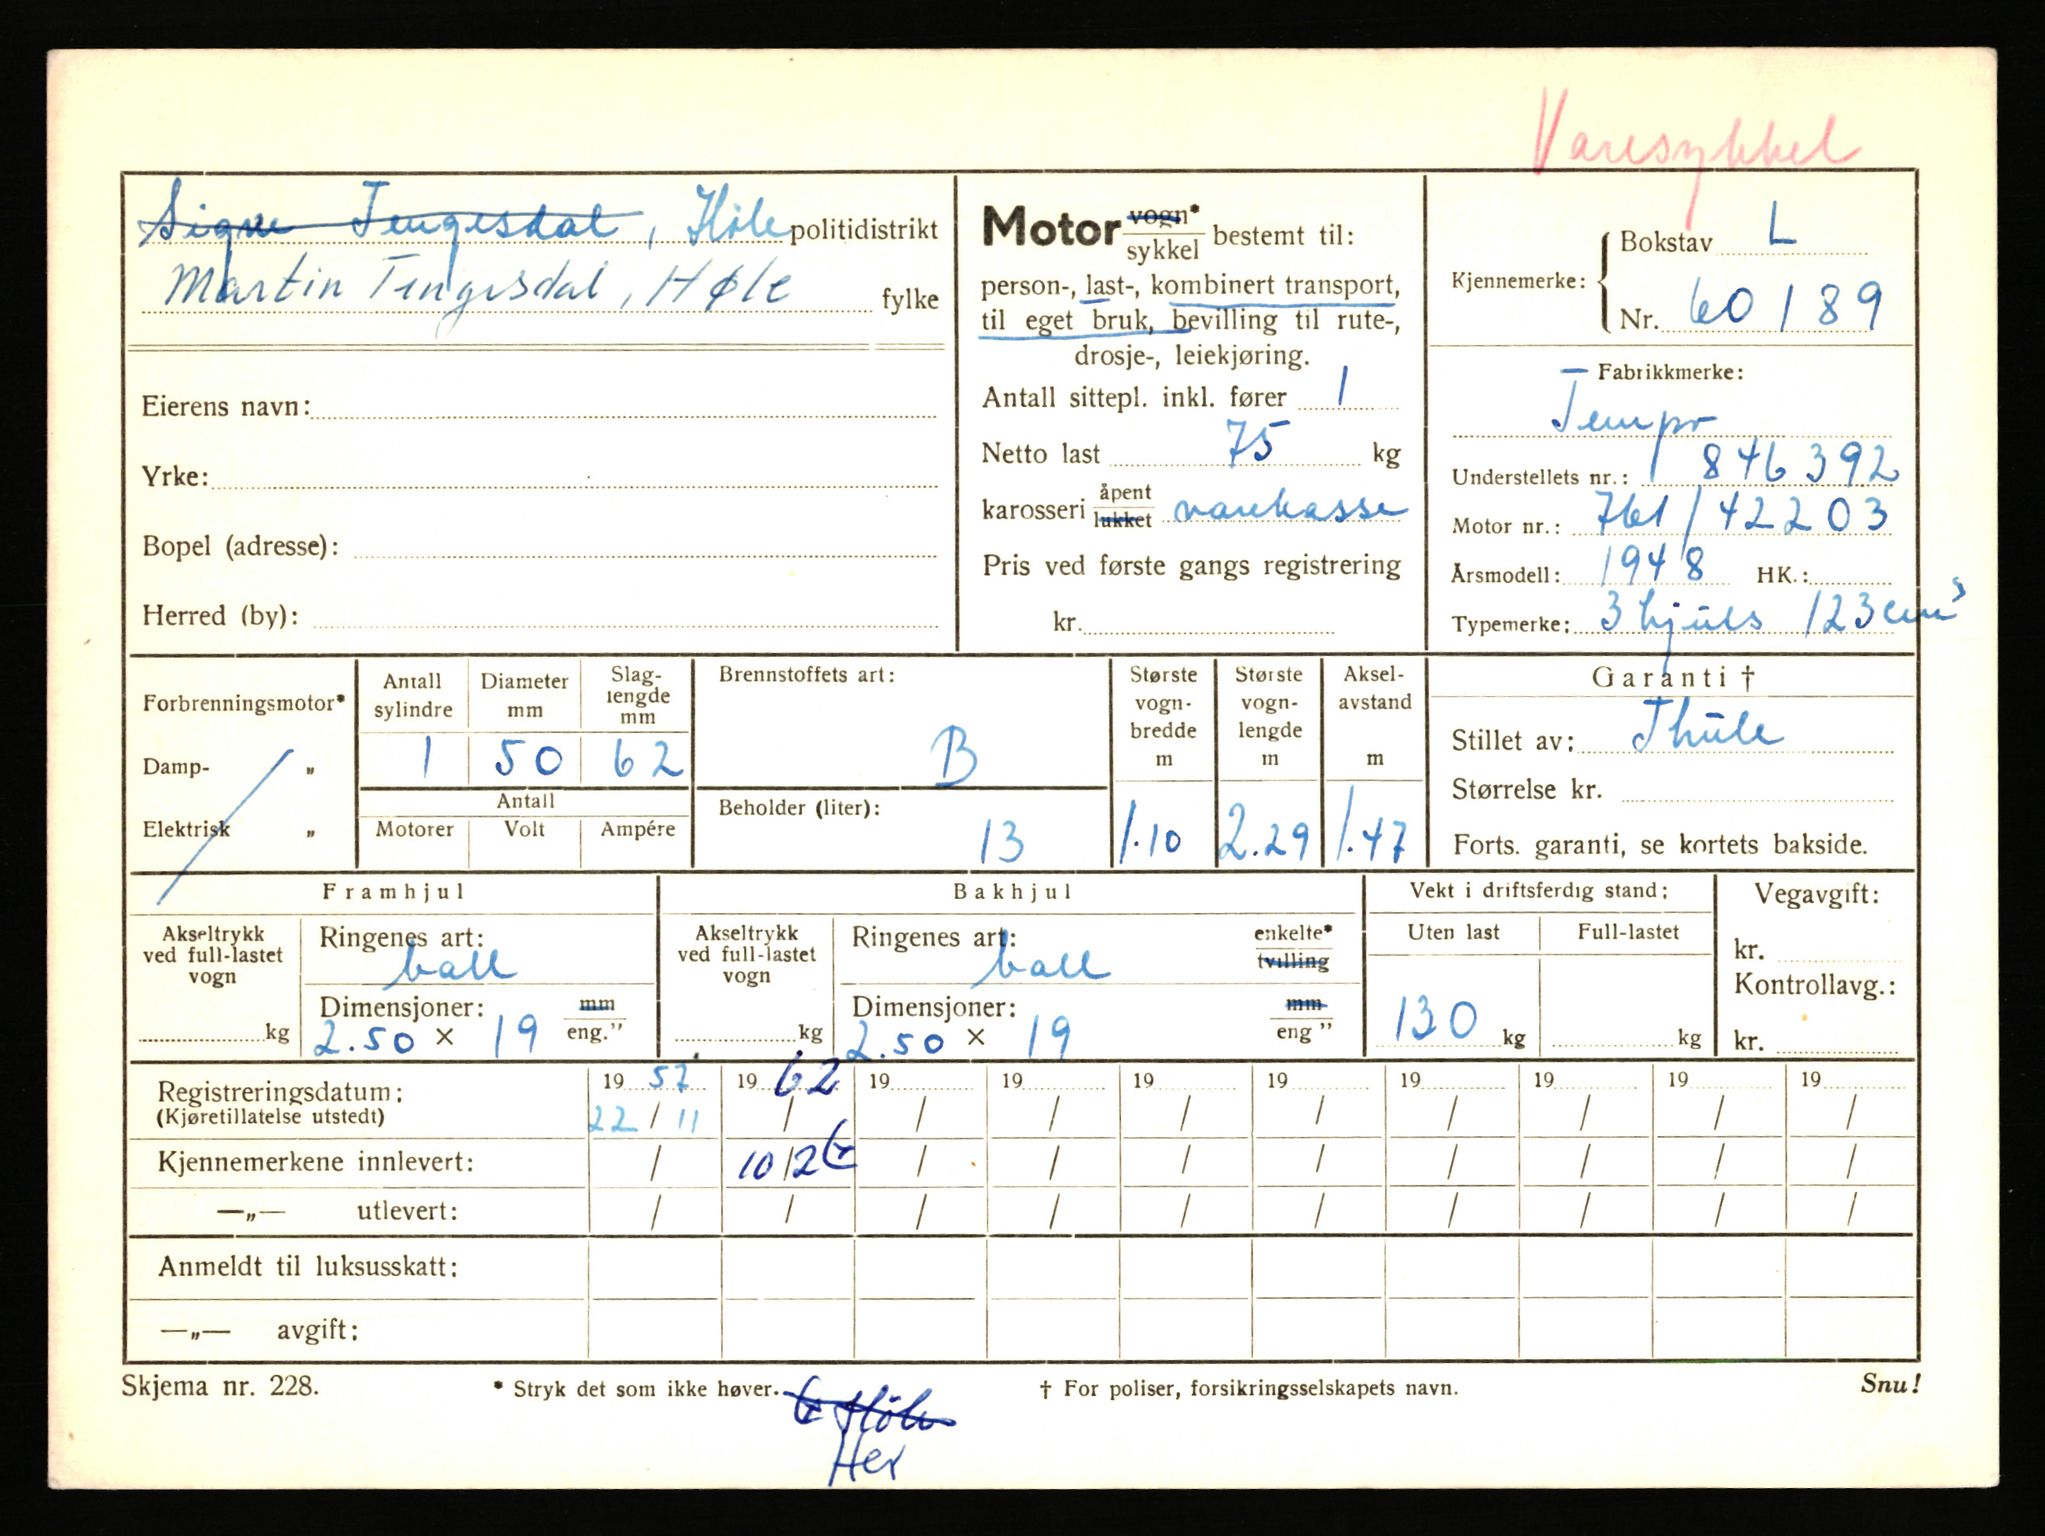 Varesykkel
Signe Tengesdal, Høle politidistrikt
Martin Tengesdal, Høle fylke
Eierens navn:
Yrke:
Bopel (adresse):
Herred (by):
Motor vogn*
sykkel bestemt til:
person-, last-, kombinert transport,
til eget bruk, bevilling til rute-,
drosje-, leiekjøring.
Antall sittepl. inkl. fører 1
Netto last 75 kg
karosseri åpent
lukket varekasse
Pris ved første gangs registrering
kr.
Kjennemerke: Bokstav L
Nr. 60189
Fabrikkmerke:
Tempo
Understellets nr.: 846392
Motor nr.: 761/42203
Årsmodell: 1948 HK.:
Typemerke: 3 hjuls 123 cm³
Forbrenningsmotor*
Damp- „
Elektrisk „
Antall sylindre
1
Diameter mm
50
Slag-
lengde
mm
62
Antall
Motorer Volt Ampére
Brennstoffets art:
B
Beholder (liter):
13
Største
vogn-
bredde
m
1.10
Største
vogn-
lengde
m
2.29
Aksel-
avstand
m
1.47
Garanti †
Stillet av: Thule
Størrelse kr.
Forts. garanti, se kortets bakside.
Framhjul
Akseltrykk
ved full-lastet
vogn
kg
Ringenes art:
ball
Dimensjoner: mm
2.50 x 19 eng."
Bakhjul
Akseltrykk
ved full-lastet
vogn
kg
Ringenes art: enkelte*
ball tvilling
Dimensjoner: mm
2.50 x 19 eng "
Vekt i driftsferdig stand:
Uten last Full-lastet
130 kg kg
Vegavgift:
kr.
Kontrollavg.:
kr.
Registreringsdatum: 19 57 19 62 19 19 19 19 19 19 19 19
(Kjøretillatelse utstedt) 22 / 11 / / / / / / / / /
Kjennemerkene innlevert: / 10/2 / / / / / / / /
—„— utlevert: / / / / / / / / / /
Anmeldt til luksusskatt:
—„— avgift:
Skjema nr. 228. * Stryk det som ikke høver. † For poliser, forsikringsselskapets navn. Snu!
Her